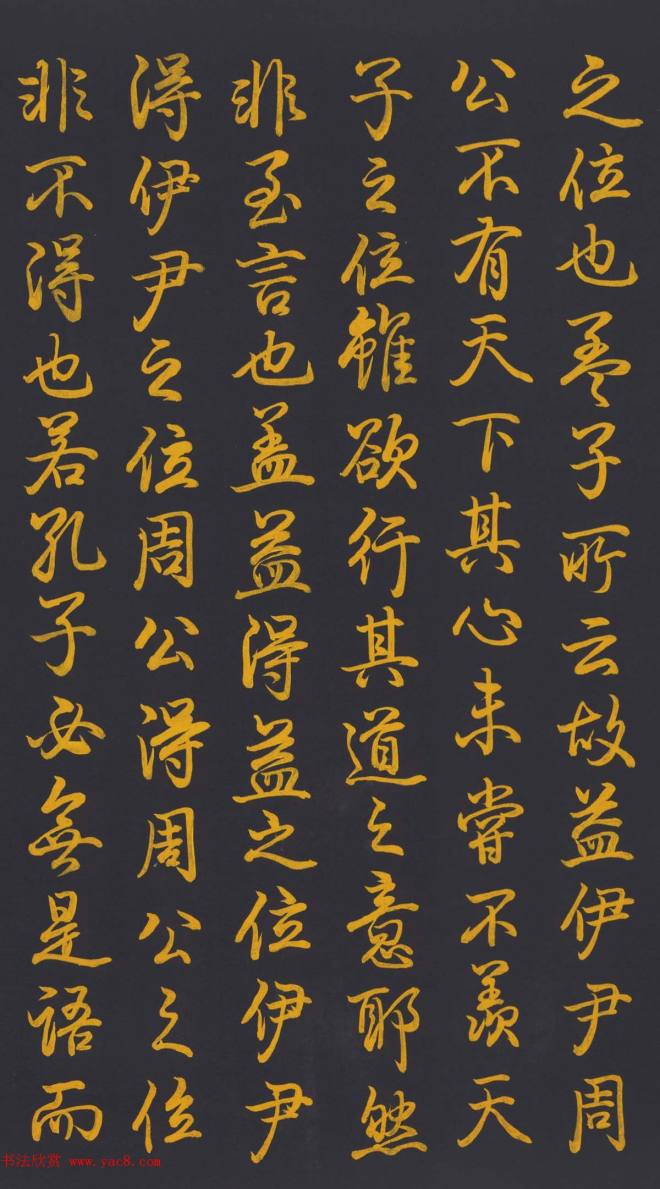 之位也孟子所云故益伊尹周
公不有天下其心未嘗不羨天
子之位雖欲行其道之意耶然
非至言也盖益得益之位伊尹
得伊尹之位周公得周公之位
非不得也若孔子必無是語而
书法欣赏 www.yac8.com